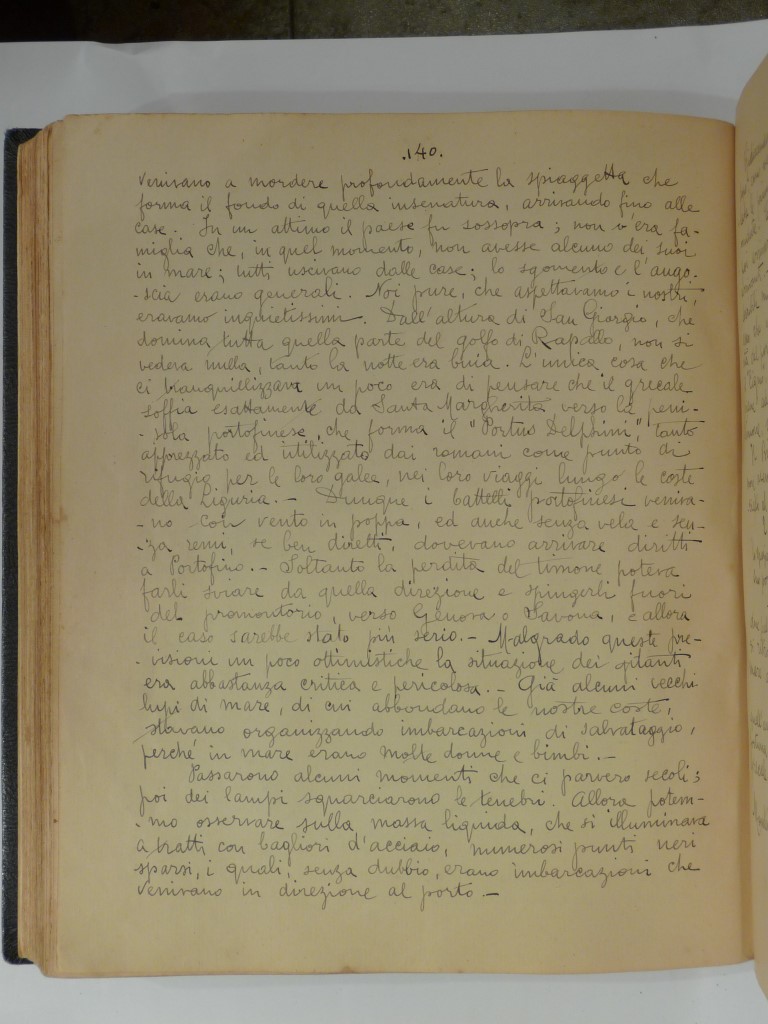 .140.
venivano a mordere profondamente la spiaggetta che
forma il fondo di quella insenatura, arrivando fino alle
case. In un attimo il paese fu sossopra; non v'era fa-
miglia che, in quel momento, non avesse alcuno dei suoi
in mare; tutti uscivano dalle case; lo sgomento e l'ango-
-scia erano generali. Noi pure, che aspettavamo i nostri,
eravamo inquietissimi. Dall'altura di San Giorgio, che
domina tutta quella parte del golfo di Rapallo, non si
vedeva nulla, tanto la notte era buia. L'unica cosa che
ci tranquillizzava un poco era di pensare che il grecale
soffia esattamente da Santa Margherita verso la peni-
-sola portofinese, che forma il "Portus Delphini", tanto
apprezzato ed utilizzato dai romani come punto di
rifugio per le loro galee, nei loro viaggi lungo le coste
della Liguria.- Dunque i battelli portofinesi veniva-
-no con vento in poppa, ed anche senza vela e sen-
-za remi, se ben diretti, dovevano arrivare diritti
a Portofino.- Soltanto la perdita del timone poteva
farli sviare da quella direzione e spingerli fuori
del promontorio, verso Genova o Savona, e allora
il caso sarebbe stato più serio.- Malgrado queste pre-
-visioni un poco ottimistiche la situazione dei gitanti
era abbastanza critica e pericolosa.- Già alcuni vecchi
lupi di mare, di cui abbondano le nostre coste,
stavano organizzando imbarcazioni di salvataggio,
perché in mare erano molte donne e bimbi.-
Passarono alcuni momenti che ci parvero secoli;
poi dei lampi squarciarono le tenebri. Allora potem-
-mo osservare sulla massa liquida, che si illuminava
a tratti con bagliori d'acciaio, numerosi punti neri
sparsi, i quali, senza dubbio, erano imbarcazioni che
venivano in direzione al porto.-